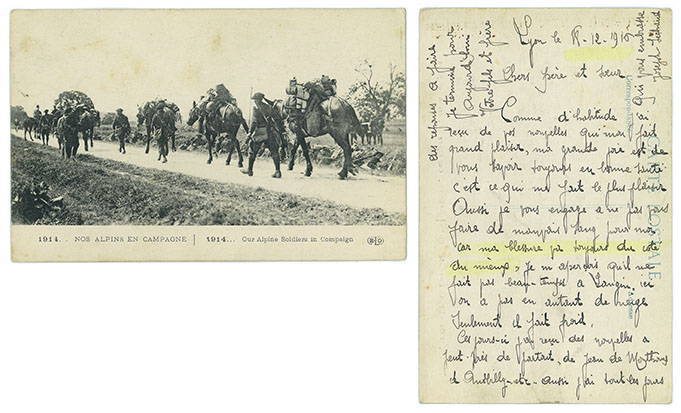 1914.. NOS ALPINS EN CAMPAGNE | 1914... Our Alpine Soldiers in Campaign ELD
Lyon le 8-12-1915
Chers père et sœur
Comme d'habitude j'ai
reçu de vos nouvelles qui m'ont fait
grand plaisir, ma grande joie est de
vous savoir toujours en bonne santé
c'est ce qui me fait le plus plaisir
Aussi je vous engage a ne pas vous
faire de mauvais sang pour moi
car ma blessure va toujours du coté
du mieux, Je m'aperçois qu'il ne
fait pas beau temps a Langin, ici
on a pas en autant de neige
seulement il fait froid,
Ces jours-ci j'ai reçu des nouvelles a
peut près de partout, de Jean de
et Aussi j'ai tout les jours
des
je termine pour
aujourd'hui
Votre fils et frère
qui vous embrasse
Joseph
CARTE POSTALE
Correspondance